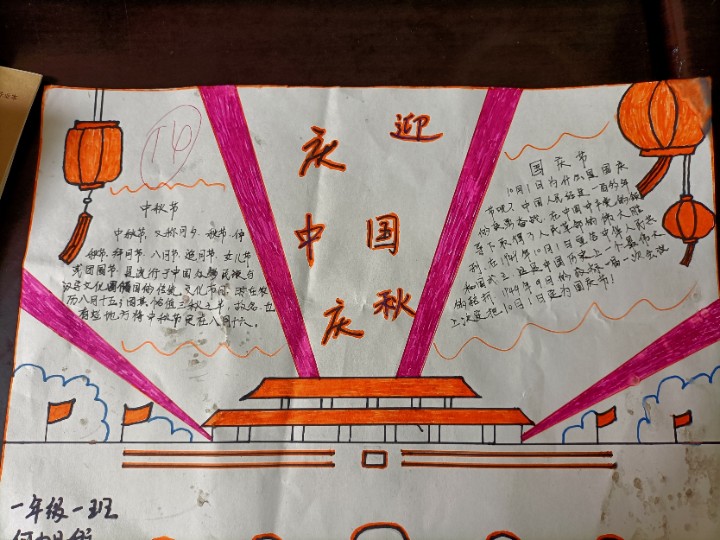 迎
国
秋
庆
中
庆
中秋节
中秋节,又称月夕、秋节、仲
秋节、拜月节、八月节、追月节、女儿节
或团圆节,是流行于中国
汉字文化圈诸国的传统文化节日,时在农
历八月十五;因其恰值三秋之半,故名,也
有些地方将中秋节定在八月十六。
国庆节
10月1日为什么是国庆
节呢?中国人民经过一百多年
的英勇奋战,在中国共产党的领
导下,取得了人民革命的伟大胜
利,在1949年10月1日宣告中华人民共
和国成立,这是中国历史上一个最伟大
的转折,1949年9月的政协一届一次会议
上决定把10月1日定为国庆节!
一年级一班